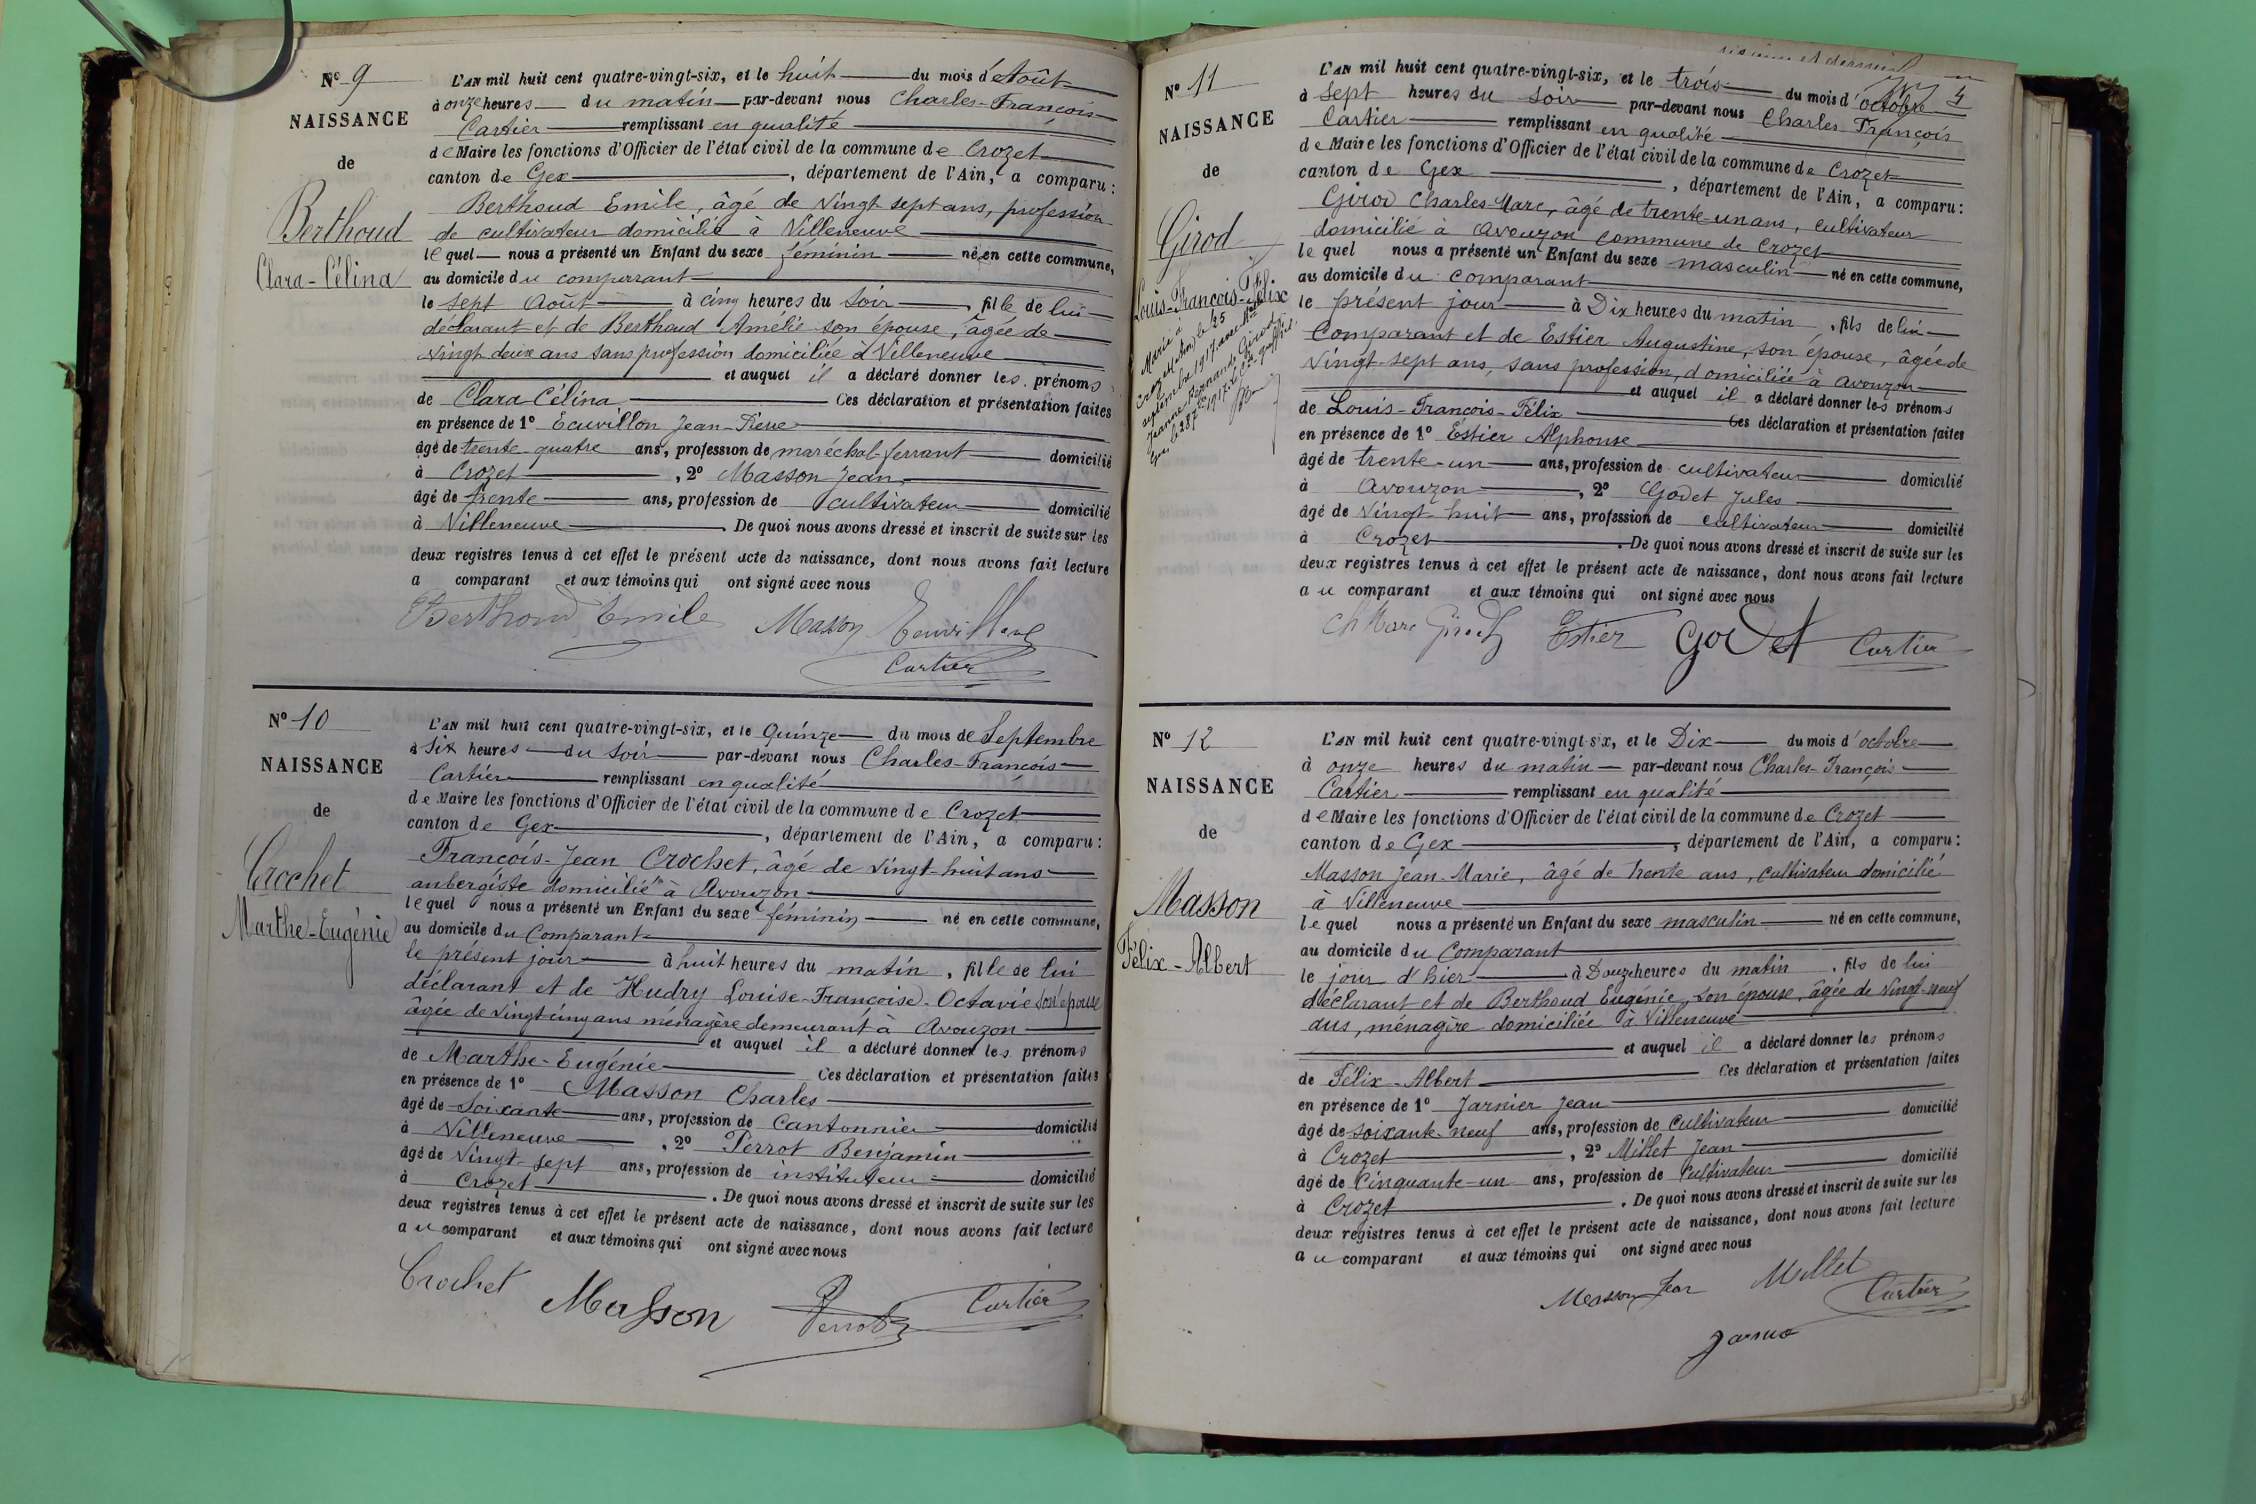 N° 9
NAISSANCE
de
Berthoud
Clara-Célina
L'AN mil huit cent quatre-vingt-six, et le huit du mois d'Août
à onze heures du matin par-devant nous Charles-François
Cartier remplissant en qualité
de Maire les fonctions d'Officier de l'état civil de la commune de Crozet
canton de Gex, département de l'Ain, a comparu:
Berthoud Emile, âgé de vingt sept ans, profession
de cultivateur domicilié à Villeneuve
lequel nous a présenté un Enfant du sexe féminin né en cette commune,
au domicile du comparant
le sept Août à cinq heures du soir, fille de lui
déclarant et de Berthoud Amélie son épouse, âgée de
vingt deux ans sans profession domiciliée à Villeneuve
et auquel il a déclaré donner les prénoms
de Clara Célina Ces déclaration et présentation faites
en présence de 1° Ecuvillon Jean-Pierre
âgé de trente-quatre ans, profession de maréchal-ferrant domicilié
à Crozet, 2° Masson Jean
âgé de trente ans, profession de cultivateur domicilié
à Villeneuve. De quoi nous avons dressé et inscrit de suite sur les
deux registres tenus à cet effet le présent acte de naissance, dont nous avons fait lecture
a comparant et aux témoins qui ont signé avec nous
Berthoud Emile Masson Ecuvillon
Cartier
N° 10
NAISSANCE
de
Crochet
Marthe-Eugénie
L'AN mil huit cent quatre-vingt-six, et le Quinze du mois de Septembre
à six heures du soir par-devant nous Charles-François
Cartier remplissant en qualité
de Maire les fonctions d'Officier de l'état civil de la commune de Crozet
canton de Gex, département de l'Ain, a comparu:
François-Jean Crochet, âgé de vingt-huit ans
aubergiste domicilié à Avouzon
lequel nous a présenté un Enfant du sexe féminin né en cette commune,
au domicile du Comparant
le présent jour à huit heures du matin, fille de lui
déclarant et de Hudry Louise-Françoise-Octavie son épouse
âgée de vingt cinq ans ménagère demeurant à Avouzon
et auquel il a déclaré donner les prénoms
de Marthe-Eugénie Ces déclaration et présentation faites
en présence de 1° Masson Charles
âgé de soixante ans, profession de Cantonnier domicilié
à Villeneuve, 2° Perrot Benjamin
âgé de vingt-sept ans, profession de instituteur domicilié
à Crozet. De quoi nous avons dressé et inscrit de suite sur les
deux registres tenus à cet effet le présent acte de naissance, dont nous avons fait lecture
au comparant et aux témoins qui ont signé avec nous
Crochet Masson Perrot Cartier
4
N° 11
NAISSANCE
de
Girod
Louis-François-Félix
Marié à
Crozet (Ain) le 25
septembre 1917 avec
Jeanne-Fernande Girod
L'AN mil huit cent quatre-vingt-six, et le trois du mois d'octobre
à sept heures du soir par-devant nous Charles François
Cartier remplissant en qualité
de Maire les fonctions d'Officier de l'état civil de la commune de Crozet
canton de Gex, département de l'Ain, a comparu:
Girod Charles-Marc, âgé de trente-un ans, cultivateur
domicilié à Avouzon commune de Crozet
lequel nous a présenté un Enfant du sexe masculin né en cette commune,
au domicile du comparant
le présent jour à Dix heures du matin, fils de lui
Comparant et de Estier Augustine, son épouse, âgée de
vingt-sept ans, sans profession, domiciliée à Avouzon
et auquel il a déclaré donner les prénoms
de Louis-François-Félix Ces déclaration et présentation faites
en présence de 1° Estier Alphonse
âgé de trente-un ans, profession de cultivateur domicilié
à Avouzon, 2° Godet Jules
âgé de vingt-huit ans, profession de cultivateur domicilié
à Crozet. De quoi nous avons dressé et inscrit de suite sur les
deux registres tenus à cet effet le présent acte de naissance, dont nous avons fait lecture
au comparant et aux témoins qui ont signé avec nous
Ch Marc Girod Estier Godet Cartier
N° 12
NAISSANCE
de
Masson
Félix-Albert
L'AN mil huit cent quatre-vingt-six, et le Dix du mois d'octobre
à onze heures du matin par-devant nous Charles-François
Cartier remplissant en qualité
de Maire les fonctions d'Officier de l'état civil de la commune de Crozet
canton de Gex, département de l'Ain, a comparu:
Masson Jean-Marie, âgé de trente ans, cultivateur domicilié
à Villeneuve
lequel nous a présenté un Enfant du sexe masculin né en cette commune,
au domicile du Comparant
le jour d'hier à Douze heures du matin, fils de lui
déclarant et de Berthoud Eugénie, son épouse, âgée de vingt-neuf
ans, ménagère domiciliée à Villeneuve
et auquel il a déclaré donner les prénoms
de Félix-Albert Ces déclaration et présentation faites
en présence de 1° Jarnier Jean
âgé de soixante-neuf ans, profession de Cultivateur domicilié
à Crozet, 2° Millet Jean
âgé de Cinquante-un ans, profession de Cultivateur domicilié
à Crozet. De quoi nous avons dressé et inscrit de suite sur les
deux registres tenus à cet effet le présent acte de naissance, dont nous avons fait lecture
au comparant et aux témoins qui ont signé avec nous
Masson Jean Millet
Cartier